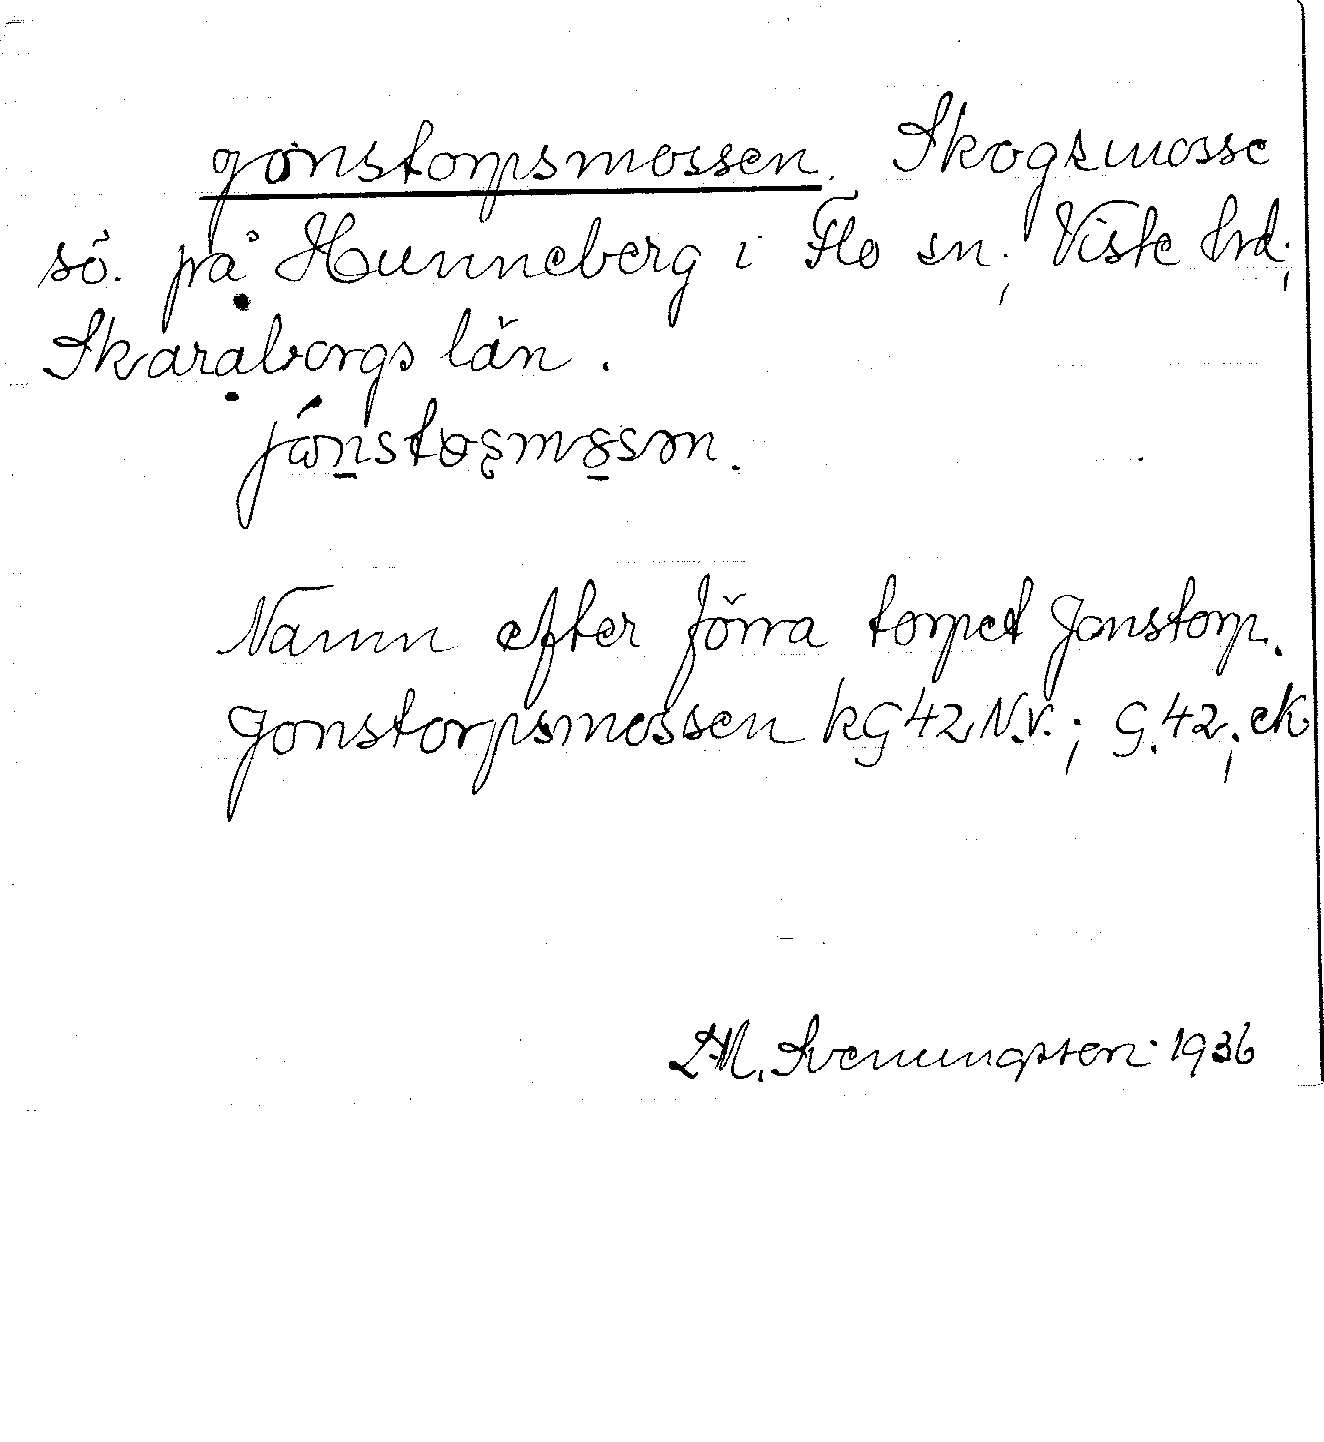 Jonstorpsmossen. Skogsmosse
sö. på Hunneberg i Flo sn; Viste hrd;
Skaraborgs län.
Namn efter förra torpet Jonstorp.
Jonstorpsmossen kG 42 N.V.; G.42; ek
Svenungsson 1936